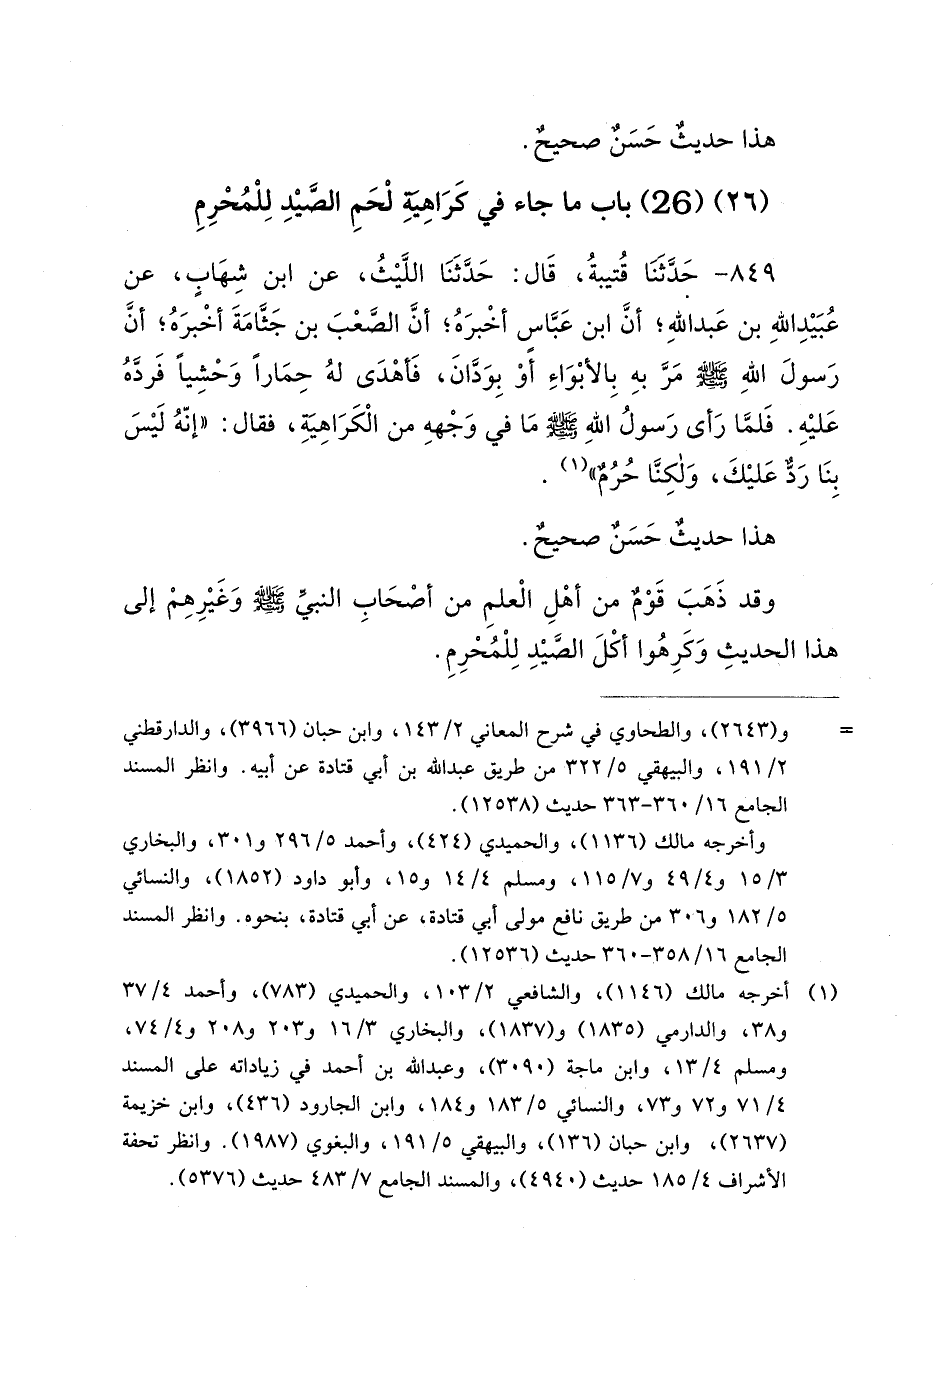 هذا حديثٌ حَسَنٌ صحيحٌ.
(٢٦) (26) باب ما جاء في كَرَاهِيَةِ لْحَمِ الصَّيْدِ لِلْمُحْرِمِ
٨٤٩- حَدَّثَنَا قُتيبةُ، قَال: حَدَّثَنَا اللَّيْثُ، عن ابن شِهَابٍ، عن
عُبَيْدِاللهِ بن عَبداللهِ؛ أنَّ ابن عَبَّاسٍ أخْبرَهُ؛ أنَّ الصَّعْبَ بن جَثَّامَةَ أخْبرَهُ؛ أنَّ
رَسولَ اللهِ ﷺ مَرَّ بهِ بِالأبْوَاءِ أوْ بِوَدَّانَ، فَأهْدَى لهُ حِمَاراً وَحْشِياً فَردَّهُ
عَليْهِ. فَلمَّا رَأى رَسولُ اللهِ ﷺ مَا في وَجْههِ من الْكَرَاهِيَةِ، فقال: «إنّهُ لَيْسَ
بِنَا رَدٌّ عَليْكَ، وَلٰكِنَّا حُرُمٌ»(١) .
هذا حديثٌ حَسَنٌ صحيحٌ.
وقد ذَهَبَ قَوْمٌ من أهْلِ الْعلمِ من أصْحَابِ النبيِّ ﷺ وَغَيْرِهِمْ إلى
هذا الحديثِ وَكَرِهُوا أكْلَ الصَّيْدِ لِلْمُحْرِمِ.
= و(٢٦٤٣)، والطحاوي في شرح المعاني ١٤٣/٢، وابن حبان (٣٩٦٦)، والدارقطني
١٩١/٢، والبيهقي ٣٢٢/٥ من طريق عبدالله بن أبي قتادة عن أبيه. وانظر المسند
الجامع ٣٦٠/١٦-٣٦٣ حديث (١٢٥٣٨).
وأخرجه مالك (١١٣٦)، والحميدي (٤٢٤)، وأحمد ٢٩٦/٥ و٣٠١، والبخاري
١٥/٣ و٤٩/٤ و١١٥/٧، ومسلم ١٤/٤ و١٥، وأبو داود (١٨٥٢)، والنسائي
١٨٢/٥ و٣٠٦ من طريق نافع مولى أبي قتادة، عن أبي قتادة، بنحوه. وانظر المسند
الجامع ٣٥٨/١٦-٣٦٠ حديث (١٢٥٣٦).
(١) أخرجه مالك (١١٤٦)، والشافعي ١٠٣/٢، والحميدي (٧٨٣)، وأحمد ٣٧/٤
و٣٨، والدارمي (١٨٣٥) و(١٨٣٧)، والبخاري ١٦/٣ و٢٠٣ و٢٠٨ و٧٤/٤،
ومسلم ١٣/٤، وابن ماجة (٣٠٩٠)، وعبدالله بن أحمد في زياداته على المسند
٧١/٤ و٧٢ و٧٣، والنسائي ١٨٣/٥ و١٨٤، وابن الجارود (٤٣٦)، وابن خزيمة
(٢٦٣٧)، وابن حبان (١٣٦)، والبيهقي ١٩١/٥، والبغوي (١٩٨٧). وانظر تحفة
الأشراف ١٨٥/٤ حديث (٤٩٤٠)، والمسند الجامع ٤٨٣/٧ حديث (٥٣٧٦).